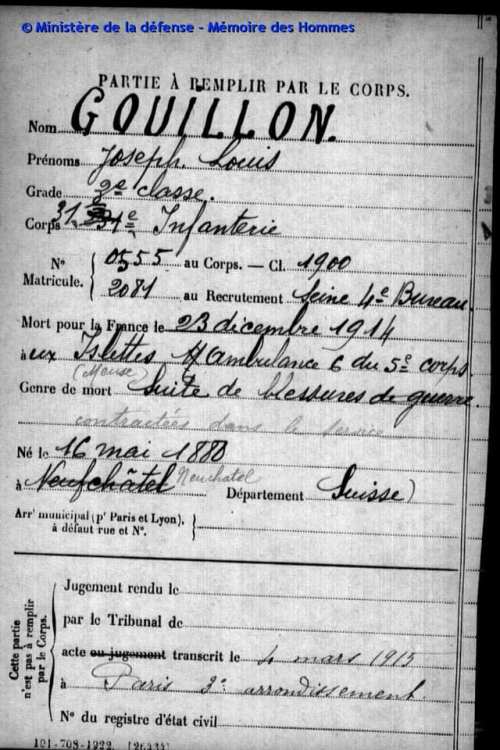 © Ministère de la défense - Mémoire des Hommes
PARTIE À REMPLIR PAR LE CORPS.
Nom GOUILLON.
Prénoms Joseph Louis
Grade 2e classe.
Corps 31e Infanterie
N° Matricule. 0555 au Corps. — Cl. 1900
2081 au Recrutement Seine 4e Bureau
Mort pour la France le 23 décembre 1914
aux Islettes Ambulance 6 du 5e corps
(Meuse)
Genre de mort Suite de blessures de guerre
contractées dans le service
Né le 16 mai 1880
à Neufchâtel Neuchatel Département Suisse)
Arrt municipal (pr Paris et Lyon),
à défaut rue et N°.
Cette partie n'est pas à remplir par le Corps.
Jugement rendu le
par le Tribunal de
acte ou jugement transcrit le 4 mars 1915
à Paris 3e arrondissement.
N° du registre d'état civil
101-708-1922. [26434]